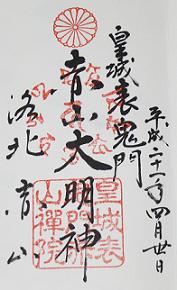 平成二十一年四月廿日
皇城表鬼門
赤山大明神
洛北 赤山
皇城表
山禪院